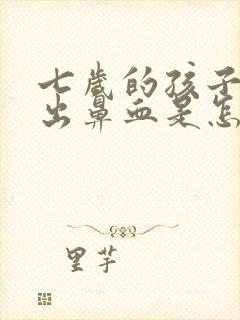 七岁的孩子
出鼻血是怎
里芋